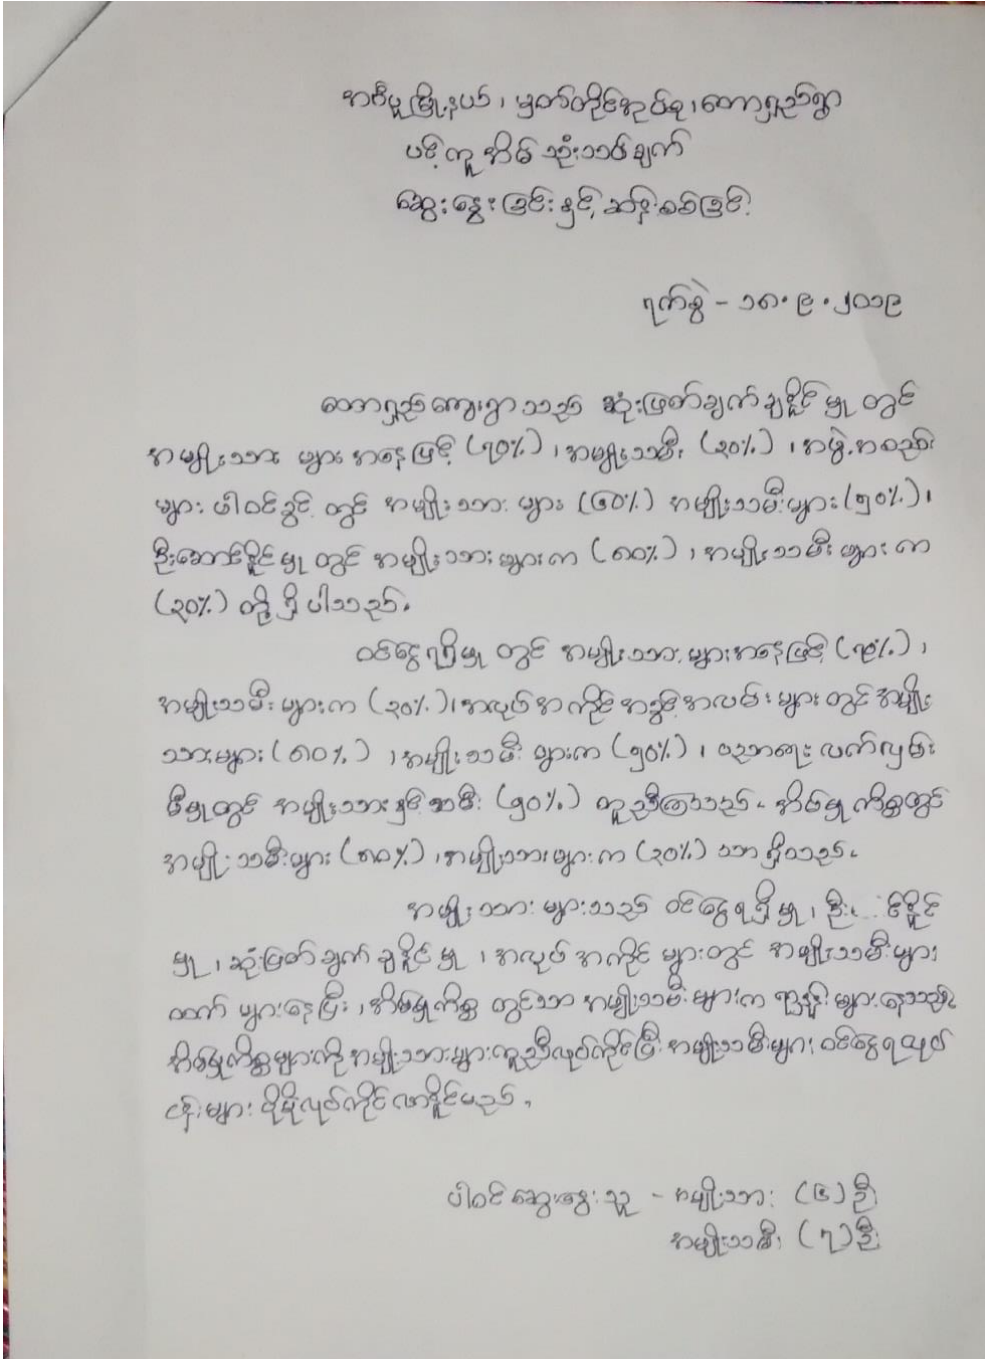 အင်္ဂပူမြို့နယ်၊ မှတ်တိုင်အုပ်စု၊ တောရှည်ရွာ
ပင့်ကူအိမ် သုံးသပ်ချက်
ဆွေးနွေးခြင်းနှင့် ဆန်းစစ်ခြင်း
ရက်စွဲ - ၁၈.၉.၂၀၁၉
တောရှည်ကျေးရွာသည် ဆုံးဖြတ်ချက်ချနိုင်မှုတွင်
အမျိုးသားများအနေဖြင့် (၇၀%)၊ အမျိုးသမီး (၃၀%)၊ အဖွဲ့အစည်း
များ ပါဝင်ခွင့်တွင် အမျိုးသားများ (၆၀%) အမျိုးသမီးများ (၅၀%)၊
ဦးဆောင်နိုင်မှုတွင် အမျိုးသားများက (၈၀%)၊ အမျိုးသမီးများက
(၃၀%) တို့ရှိပါသည်။
ဝင်ငွေရရှိမှုတွင် အမျိုးသားများအနေဖြင့် (၇၀%)၊
အမျိုးသမီးများက (၃၀%)၊ အလုပ်အကိုင်အခွင့်အလမ်းများတွင် အမျိုး
သားများ (၈၀%)၊ အမျိုးသမီးများက (၅၀%)၊ ပညာရေးလက်လှမ်း
မီမှုတွင် အမျိုးသားနှင့် သမီး (၅၀%) တူညီကြသည်။ အိမ်မှုကိစ္စတွင်
အမျိုးသမီးများ (၈၀%)၊ အမျိုးသားများက (၃၀%) သာရှိသည်။
အမျိုးသားများသည် ဝင်ငွေရရှိမှု၊ နိုင်
မှု၊ ဆုံးဖြတ်ချက်ချနိုင်မှု၊ အလုပ်အကိုင်များတွင် အမျိုးသမီးများ
ထက် များနေပြီး၊ အိမ်မှုကိစ္စတွင်သာ အမျိုးသမီးများက ရာနှုန်းများနေသည်။
အိမ်မှုကိစ္စများကို အမျိုးသားများကူညီလုပ်ကိုင်ပြီး အမျိုးသမီးများ ဝင်ငွေရလုပ်
ငန်းများ ပိုမိုလုပ်ကိုင်လာနိုင်မည်။
ပါဝင်ဆွေးနွေးသူ - အမျိုးသား (၆) ဦး
အမျိုးသမီး (၇) ဦး